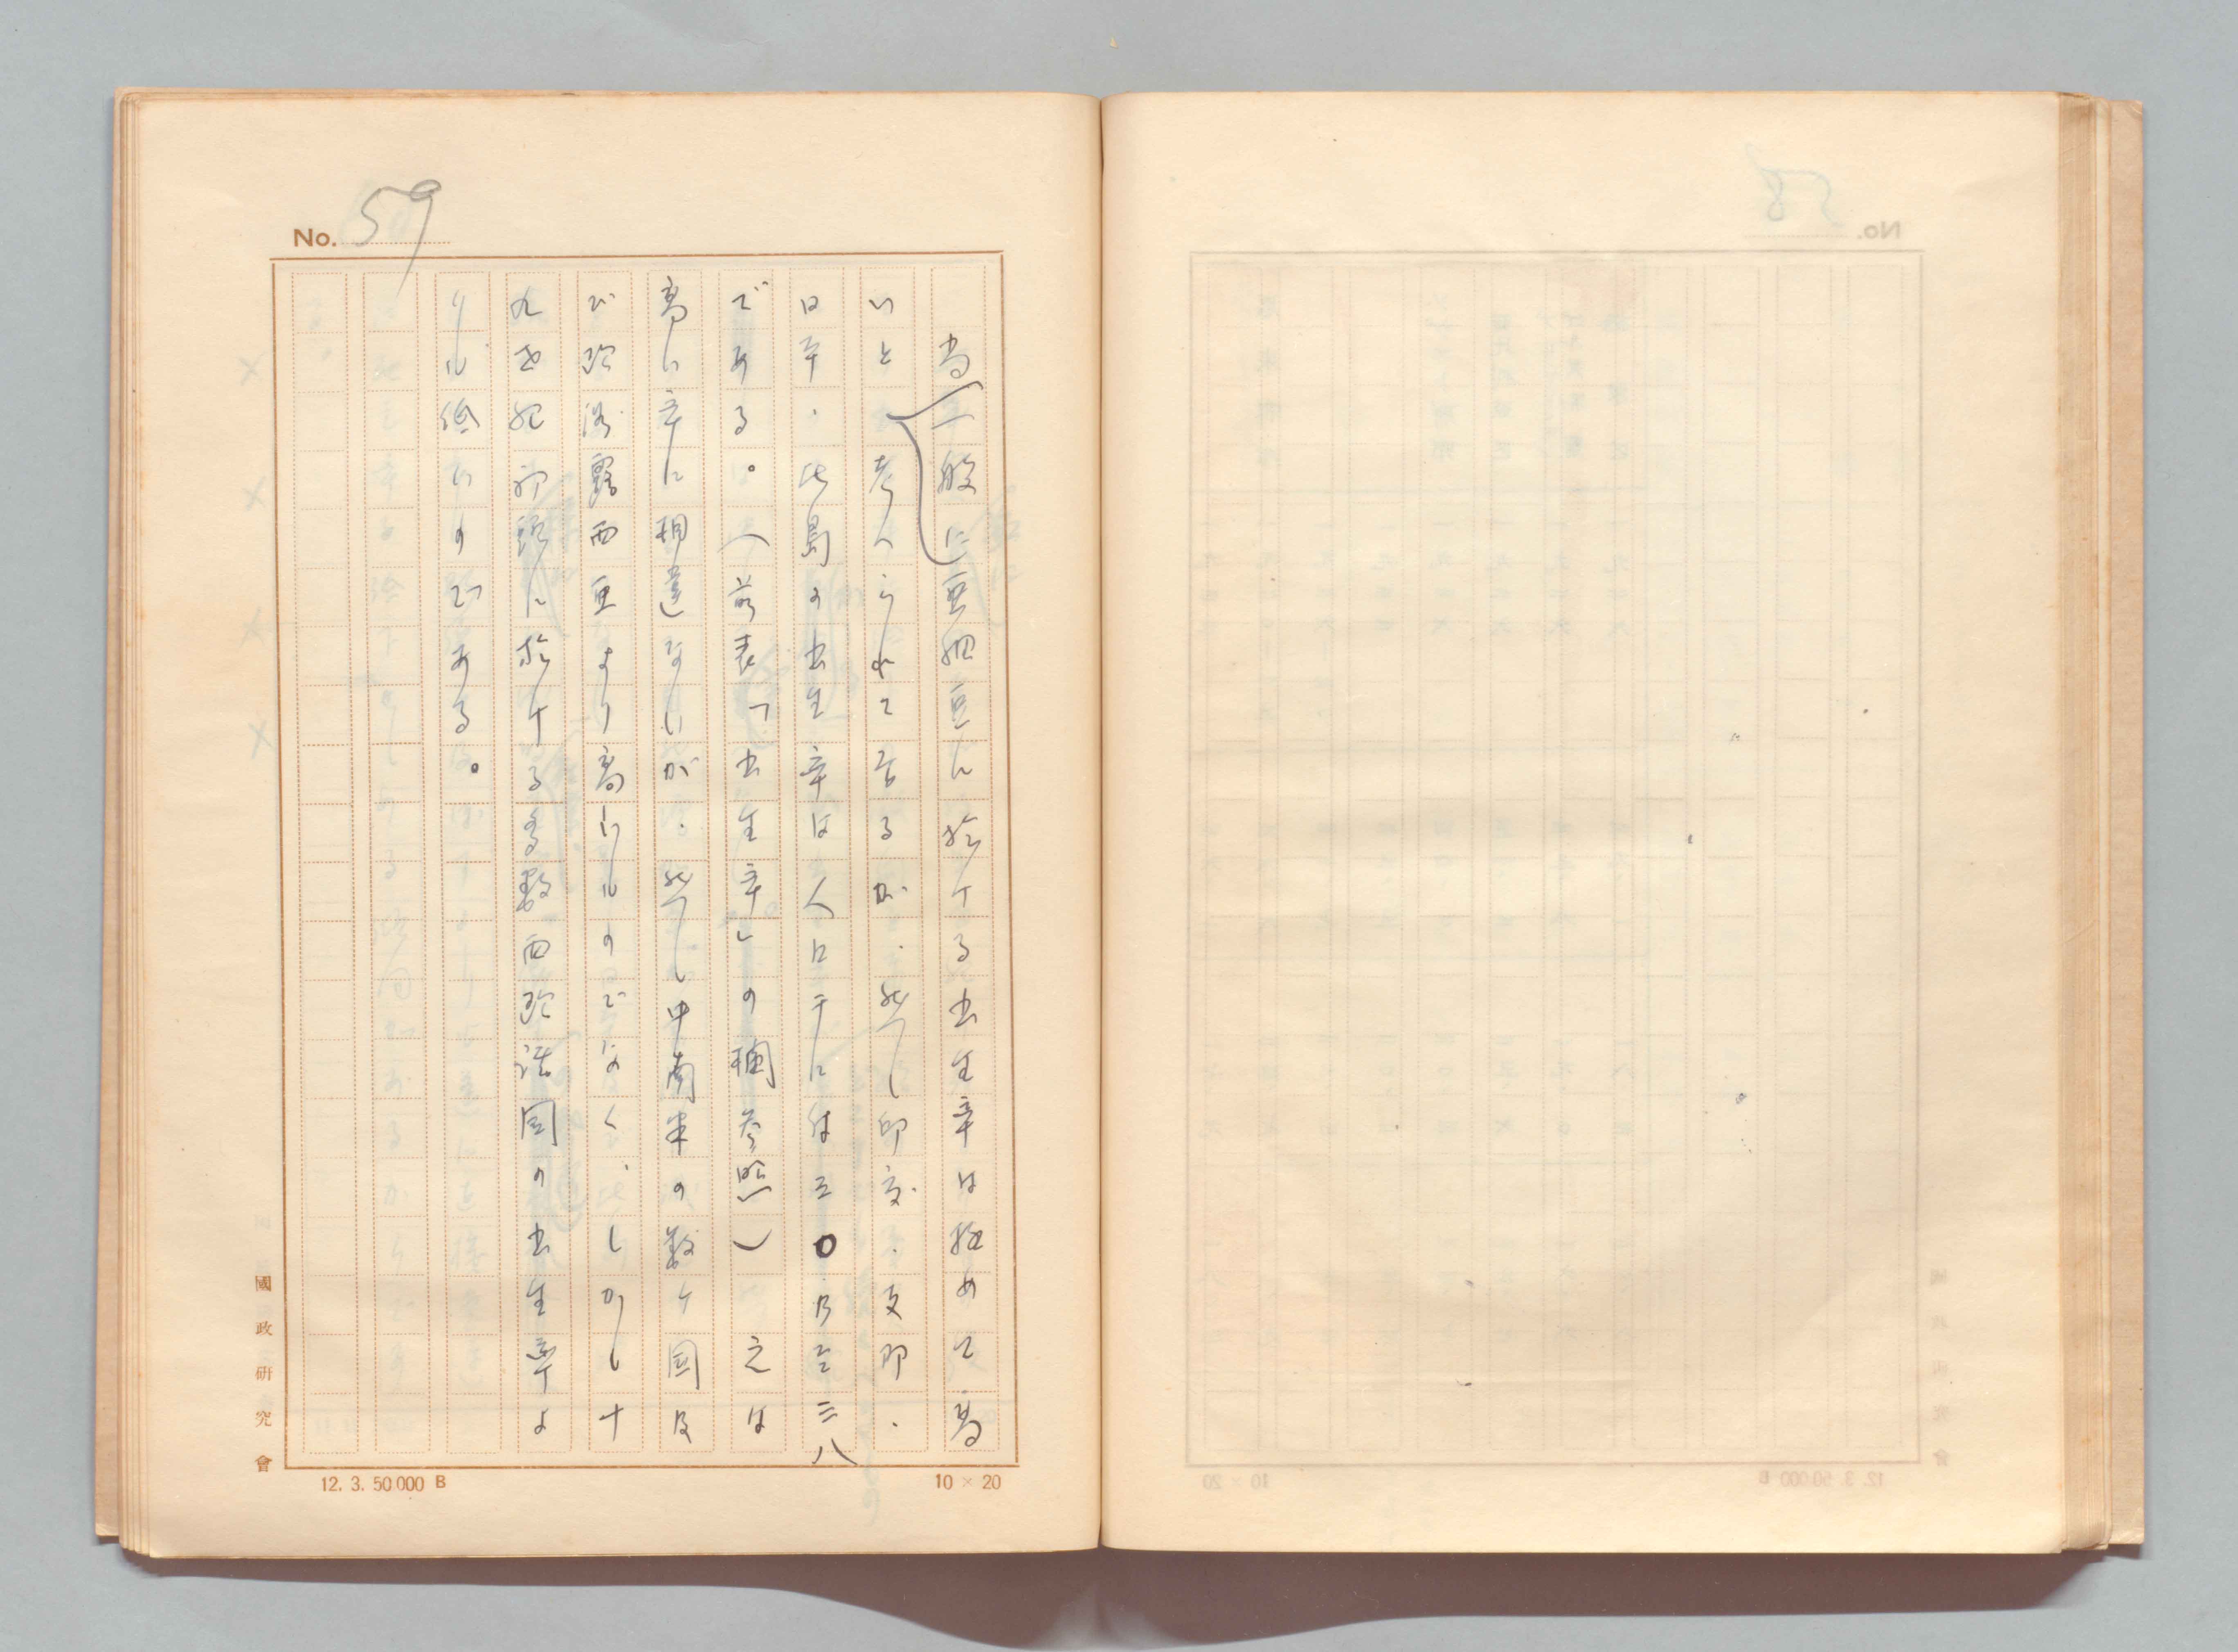 No. 59
尚一般に亜細亜に於ケる出生率は極めて高
いと考へられて居るが、然し印度、支那、
日本、比島の出生率は人口千に付三〇乃至三八
である。（前表「出生率」の欄参照）之は
高い率に相違ないが、然し中南米の数ケ国及
び欧洲露西亜より高いものでなく、しかも十
九世紀初頭に於ケる多数西欧諸国の出生率よ
りも低いのである。
國政研究會
12. 3. 50 000 B
10 × 20